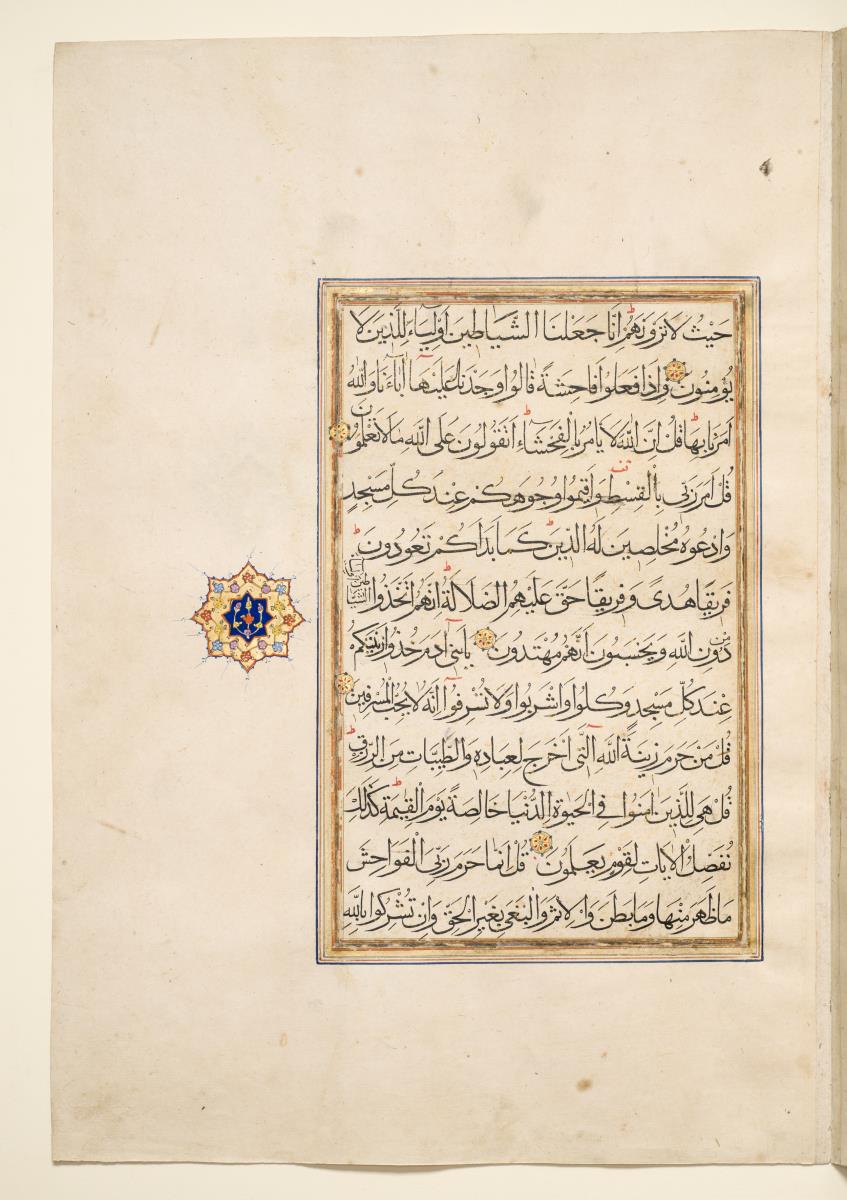 حَيْثُ لَا تَرَوْنَهُمْ ط اِنَّا جَعَلْنَا الشَّيَاطِينَ اَوْلِيَاءَ لِلَّذِينَ لَا
يُؤْمِنُونَ وَاِذَا فَعَلُوا فَاحِشَةً قَالُوا وَجَدْنَا عَلَيْهَا اٰبَاءَنَا وَاللّٰهُ
اَمَرَنَا بِهَا ط قُلْ اِنَّ اللّٰهَ لَا يَاْمُرُ بِالْفَحْشَاءِ ط اَتَقُولُونَ عَلَى اللّٰهِ مَا لَا تَعْلَمُونَ
قُلْ اَمَرَ رَبِّى بِالْقِسْطِ قف وَاَقِيمُوا وُجُوهَكُمْ عِنْدَ كُلِّ مَسْجِدٍ
وَادْعُوهُ مُخْلِصِينَ لَهُ الدِّينَ ط كَمَا بَدَاَكُمْ تَعُودُونَ ط
فَرِيقًا هَدٰى وَفَرِيقًا حَقَّ عَلَيْهِمُ الضَّلَالَةُ ط اِنَّهُمُ اتَّخَذُوا الشَّيَاطِينَ اَوْلِيَاءَ
مِنْ دُونِ اللّٰهِ وَيَحْسَبُونَ اَنَّهُمْ مُهْتَدُونَ يَابَنِى اٰدَمَ خُذُوا زِينَتَكُمْ
عِنْدَ كُلِّ مَسْجِدٍ وَكُلُوا وَاشْرَبُوا وَلَا تُسْرِفُوا اِنَّهُ لَا يُحِبُّ الْمُسْرِفِينَ
قُلْ مَنْ حَرَّمَ زِينَةَ اللّٰهِ الَّتِى اَخْرَجَ لِعِبَادِهِ وَالطَّيِّبَاتِ مِنَ الرِّزْقِ ط
قُلْ هِىَ لِلَّذِينَ اٰمَنُوا فِى الْحَيٰوةِ الدُّنْيَا خَالِصَةً يَوْمَ الْقِيٰمَةِ ط كَذٰلِكَ
نُفَصِّلُ الْاٰيَاتِ لِقَوْمٍ يَعْلَمُونَ قُلْ اِنَّمَا حَرَّمَ رَبِّىَ الْفَوَاحِشَ
مَا ظَهَرَ مِنْهَا وَمَا بَطَنَ وَالْاِثْمَ وَالْبَغْىَ بِغَيْرِ الْحَقِّ وَاَنْ تُشْرِكُوا بِاللّٰهِ